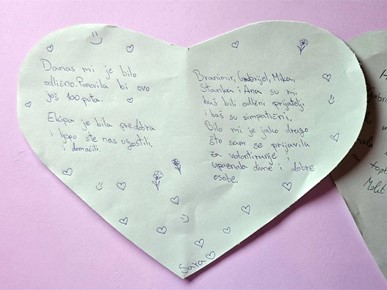 Danas mi je bilo
odlično. Ponovila bi ovo
još 100 puta.
Ekipa je bila predobra
i lijepo ste nas ugostili
i dočekali.
Branimir, Gabrijel, Mika,
Stanka i Ana su mi
baš bili odlični prijatelji
i baš su simpatični.
Bilo mi je jako drago
što sam se prijavila
za volontiranje i
upoznala divne i dobre
osobe.
Sara